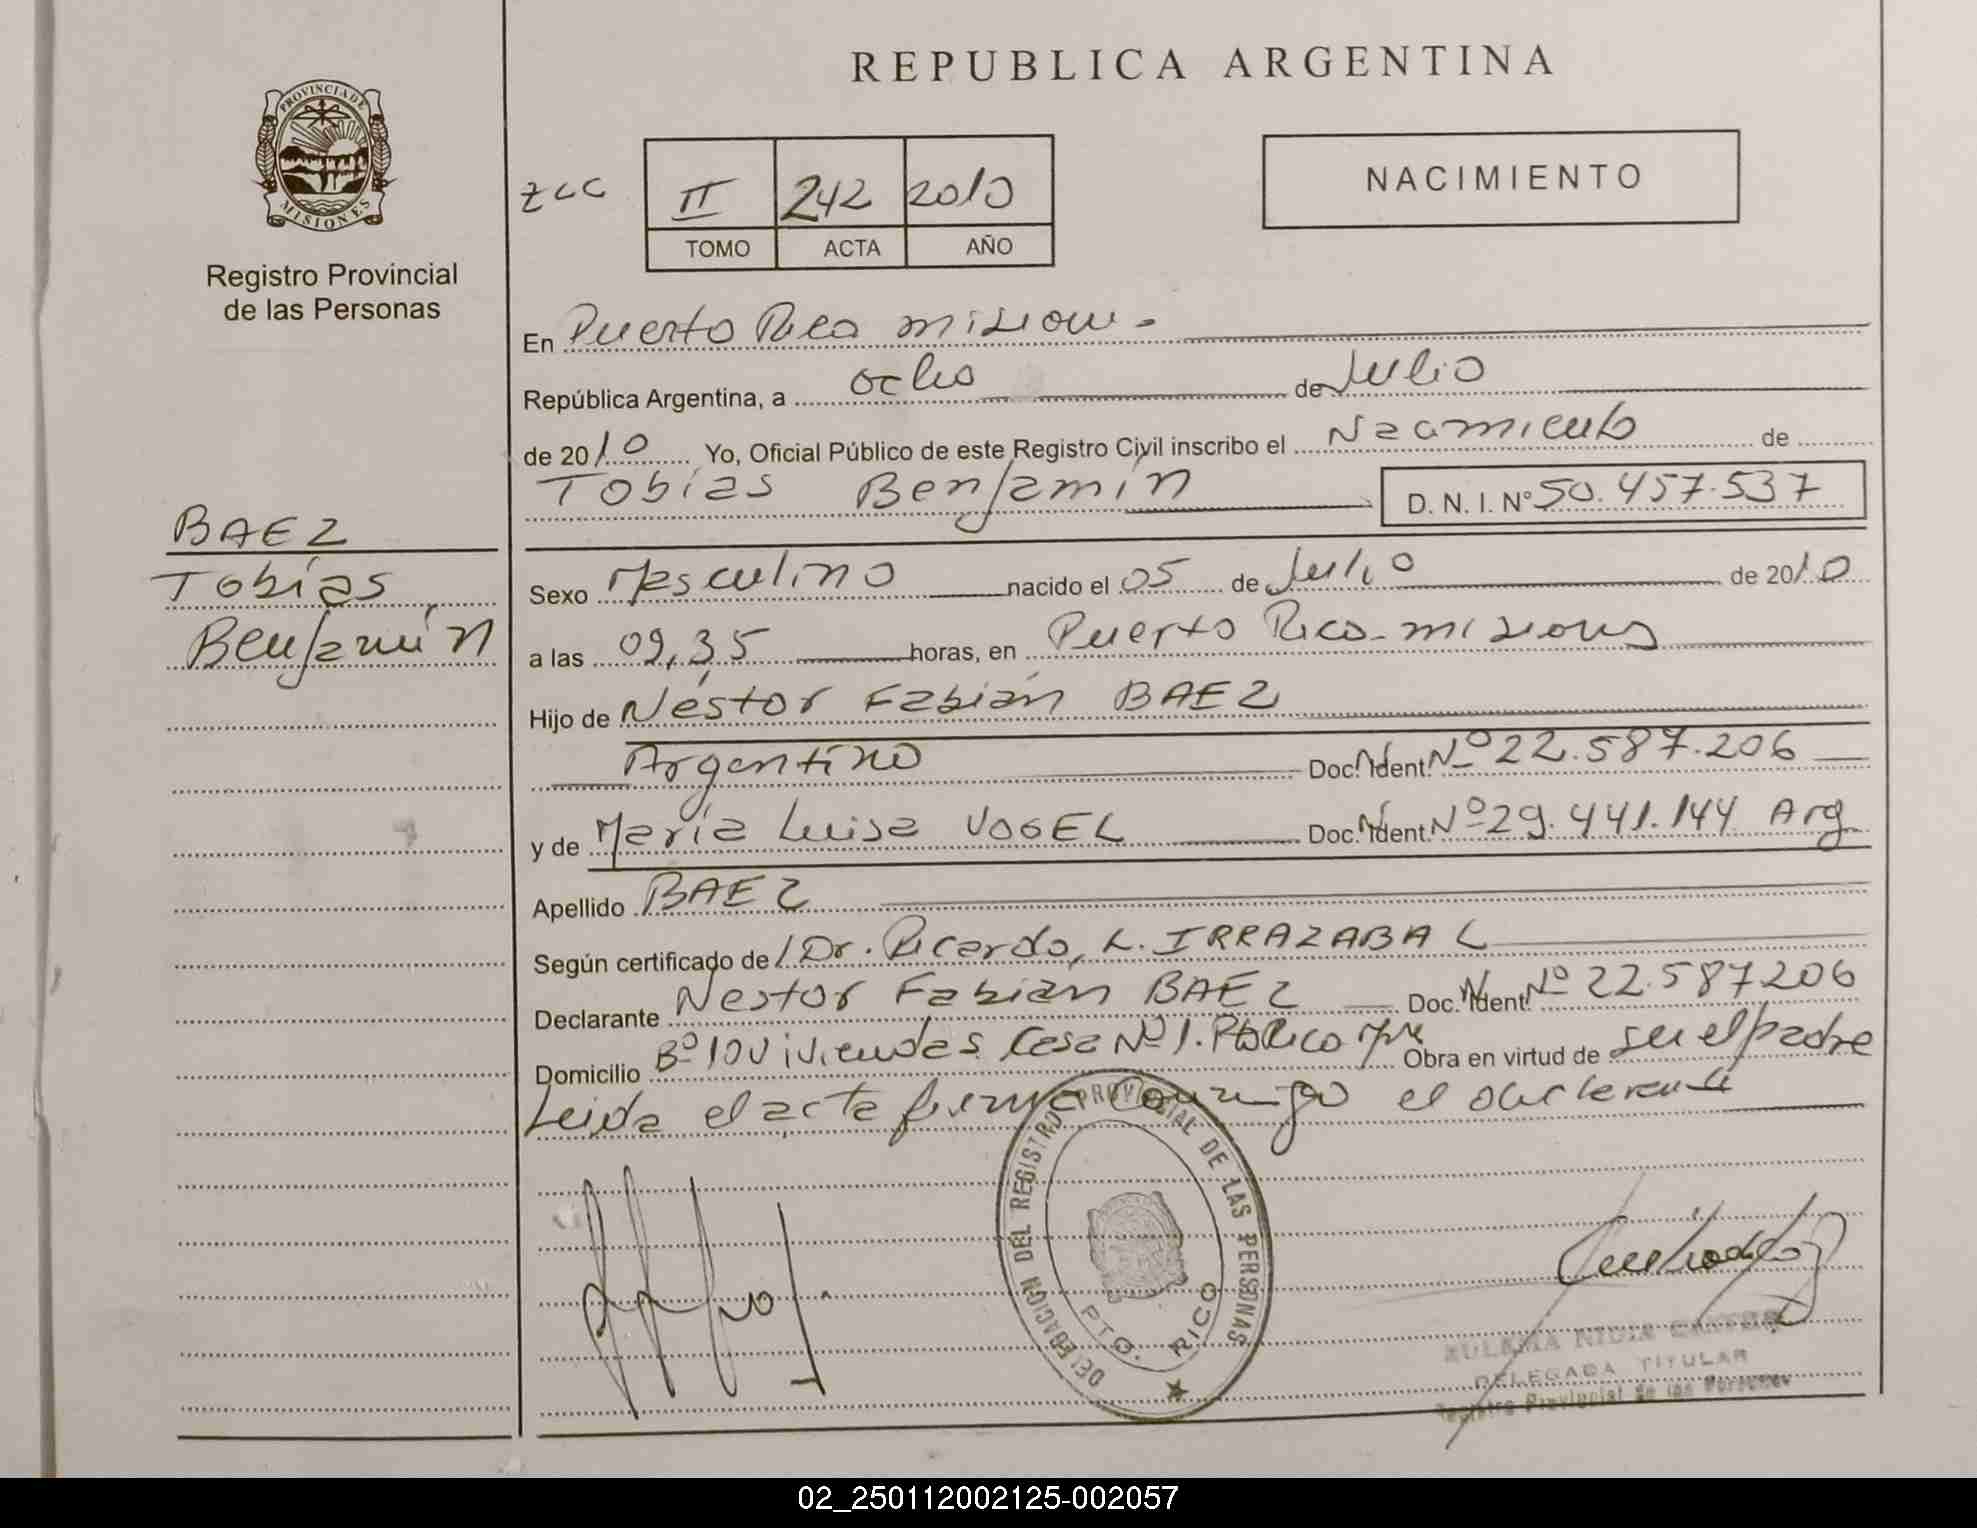 REPUBLICA ARGENTINA
PROVINCIA DE
MISIONES
Registro Provincial
de las Personas
II 242 2010
TOMO ACTA AÑO
NACIMIENTO
En Puerto Rico Misiones -
República Argentina, a ocho de Julio
de 2010 Yo, Oficial Público de este Registro Civil inscribo el Nacimiento de
Tobías Benjamín D. N. I. Nº 50.457.537
BAEZ
Tobías
Benjamín
Sexo Masculino nacido el 05 de Julio de 2010
a las 09,35 horas, en Puerto Rico - Misiones
Hijo de Néstor Fabián BAEZ
Argentino Doc. Ident. Nº 22.587.206
y de María Luisa VOGEL Doc. Ident. Nº 29.441.144 Arg
Apellido BAEZ
Según certificado del Dr. Ricardo, L. IRRAZABAL
Declarante Nestor Fabian BAEZ Doc. Ident. Nº 22.587206
Domicilio Bº 10 Viviendas Casa Nº 1. Pto Rico Obra en virtud de ser el padre
Leida el acta firma conmigo el declarante
DELEGACION DEL REGISTRO PROVINCIAL DE LAS PERSONAS
PTO. RICO
DELEGADA TITULAR
Registro Provincial de las Personas
02_250112002125-002057